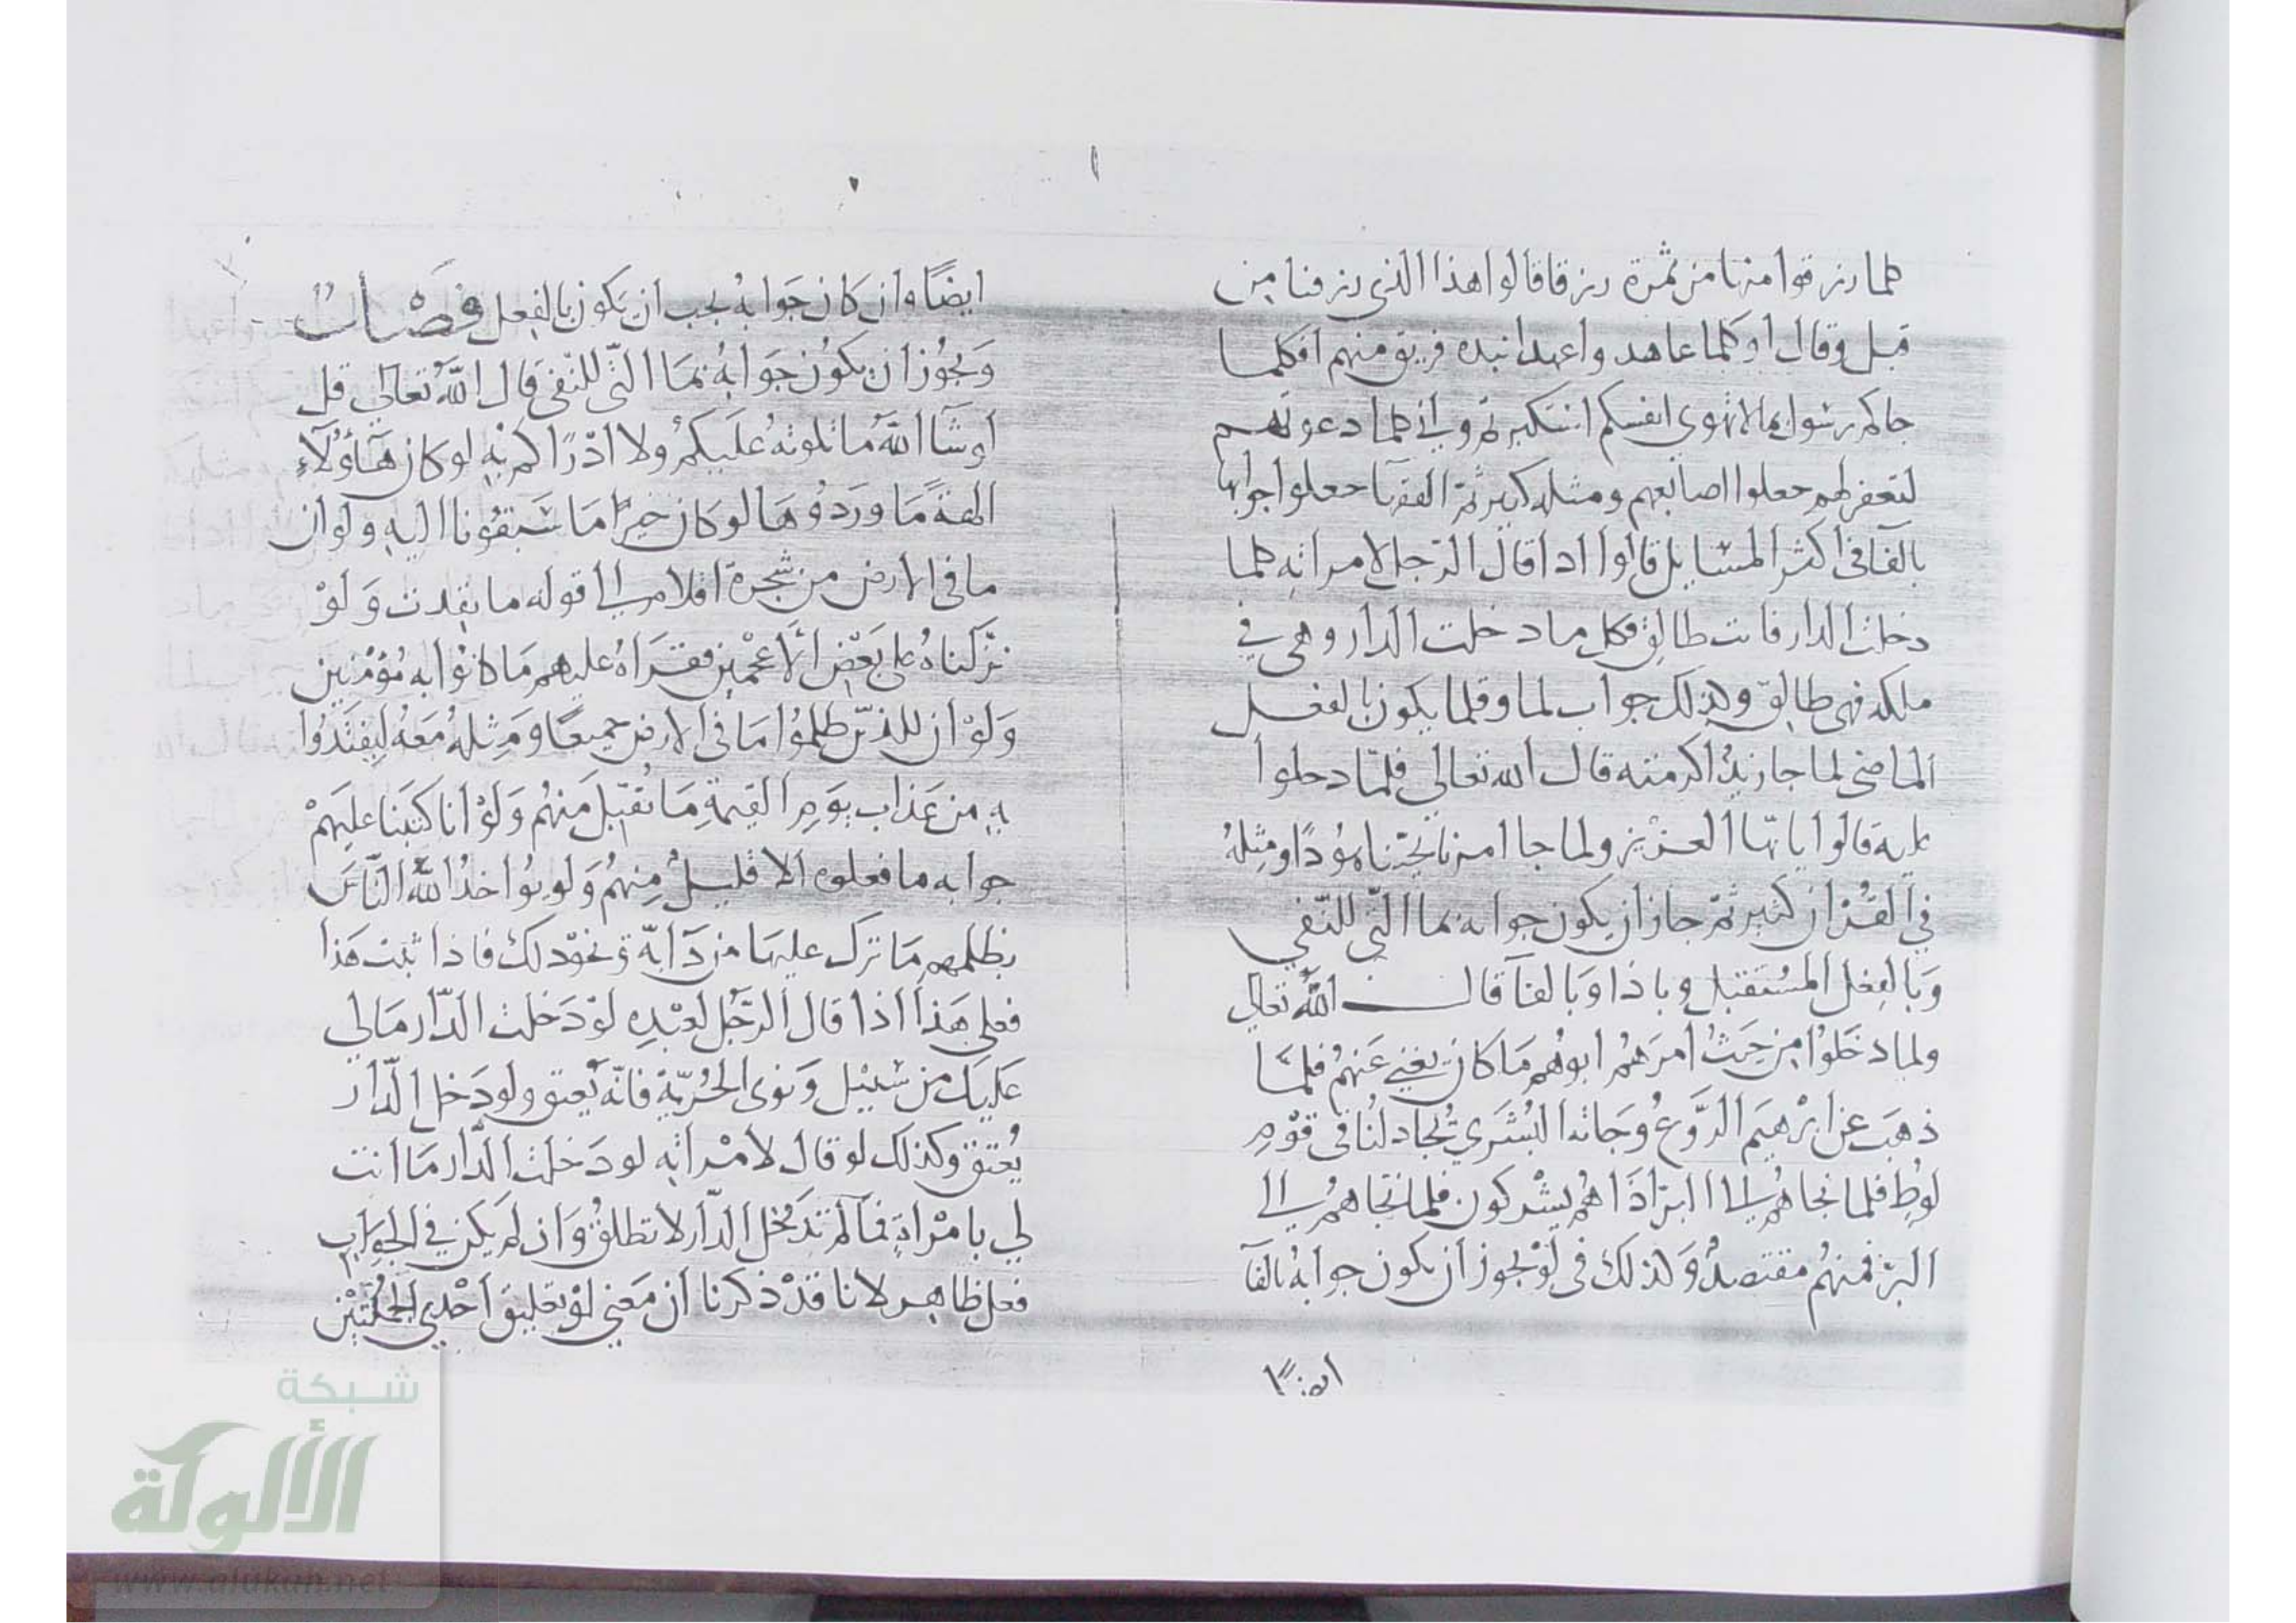 كلما رزقوا منها من ثمرة رزقا قالوا هذا الذي رزقنا من
قبل وقال اوكلما عاهدوا عهدا نبده فريق منهم افكلما
جاكم رسول بما لا تهوي انفسكم استكبرتم واني كلما دعوتهم
لتغفر لهم جعلوا اصابعهم ومثله كثير ثم الفقها جعلوا جوابها
بالفا في اكثر المسايل قالوا اذا قال الرجل لامراته كلما
دخلت الدار فانت طالق فكل ما دخلت الدار وهى في
ملكه فهى طالق وكذلك جواب لما وقلما يكون بالفعل
الماضى لما جا زيد اكرمته قال الله تعالى فلما دخلوا
عليه قالوا يا ايها العزيز ولما جا امرنا نجينا هودا ومثله
في القران كثير ثم جاز ان يكون جوابه بما التي للنفي
وبالفعل المستقبل وباذا وبالفآ قال الله تعالي
ولما دخلوا من حيث امرهم ابوهم ما كان يغني عنهم فلما
ذهب عن ابرهيم الروع وجاته البشري يجادلنا في قوم
لوط فلما نجاهم الى البر اذا هم يشركون فلما نجاهم الى
البر فمنهم مقتصد وكذلك فى لو يجوز ان يكون جوابه بالفآ
ايضًا
ايضًا وان كان جوابه يجب ان يكون بالفعل فصْـــل
ويجوز ان يكون جوابه بما التي للنفي قال الله تعالي قل
لو شآ الله ما تلوته عليكم ولا ادراكم به لو كان هآؤلآء
الهة ما وردوها لو كان خيرًا ما سبقونا اليه ولو ان
ما في الارض من شجرة اقلام الى قوله ما نفدت ولوْ
نزلناه على بعض الاعجمين فقراه عليهم ما كانوا به مؤمنين
ولو ان للذين ظلموا ما في الارض جميعًا ومثله معه ليفتدوا
به من عذاب يوم القيمة ما تقبل منهم ولو انا كتبنا عليهم
جوابه ما فعلوه الا قليل منهم ولو يواخذ الله الناس
بظلمهم ما ترك عليها من دآبة ونحو ذلك فاذا ثبت هذا
فعلى هذا اذا قال الرجل لعبده لو دخلت الدار مالي
عليك من سبيل ونوى الحرية فانه يعتق ولو دخل الدار
يعتق وكذلك لو قال لامراته لو دخلت الدار ما انت
لي بامراة فما لم تدخل الدار لا تطلق وان لم يكن في الجواب
فعل ظاهر لانا قد ذكرنا ان معني لو تعليق احدي الجملتين
شبكة
الألوكة
www.alukah.net